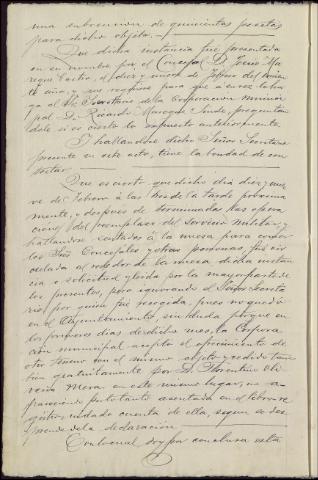 una subvención de quinientas pesetas
para dicho objeto.
Que dicha instancia fué presentada
en su nombre por el Concejal D. Jesús
Castro, el diez y nueve de Febrero del
año, y se requiere para que á su vez
al Sr. Secretario de la Corporación munici
pal D. Ricardo preguntan
dole si es cierto lo expuesto anteriormente.
Y hallandose dicho Señor Secretario
presente en este acto, tiene la bondad de con
testar:
Que es cierto que dicho día diez y nue
ve de Febrero á las tres de la tarde próxima
mente, y despues de terminadas las opera
ciones del reemplazo del servicio militar, y
hallandose sentados á la mesa para comer
los Sres Concejales y otras personas, fué cir
culada al rededor de la mesa dicha instan
cia ó solicitud y leida por la mayor parte de
los presentes, pero ignorando el Señor Secreta
rio por quien fué recogida, pues no quedó
en el Ayuntamiento, sin duda porque en
los primeros días de dicho mes, la Corpora
ción municipal aceptó el ofrecimiento de
otro terreno con el mismo objeto y cedido tam
bién gratuitamente por D. Florentino
Mera en este mismo lugar, no a
pareciendo por lo tanto asentada en el libro re
gistro, ni dado cuenta de ella, segun se des
prende de la declaración.
Con lo cual doy por conclusa esta